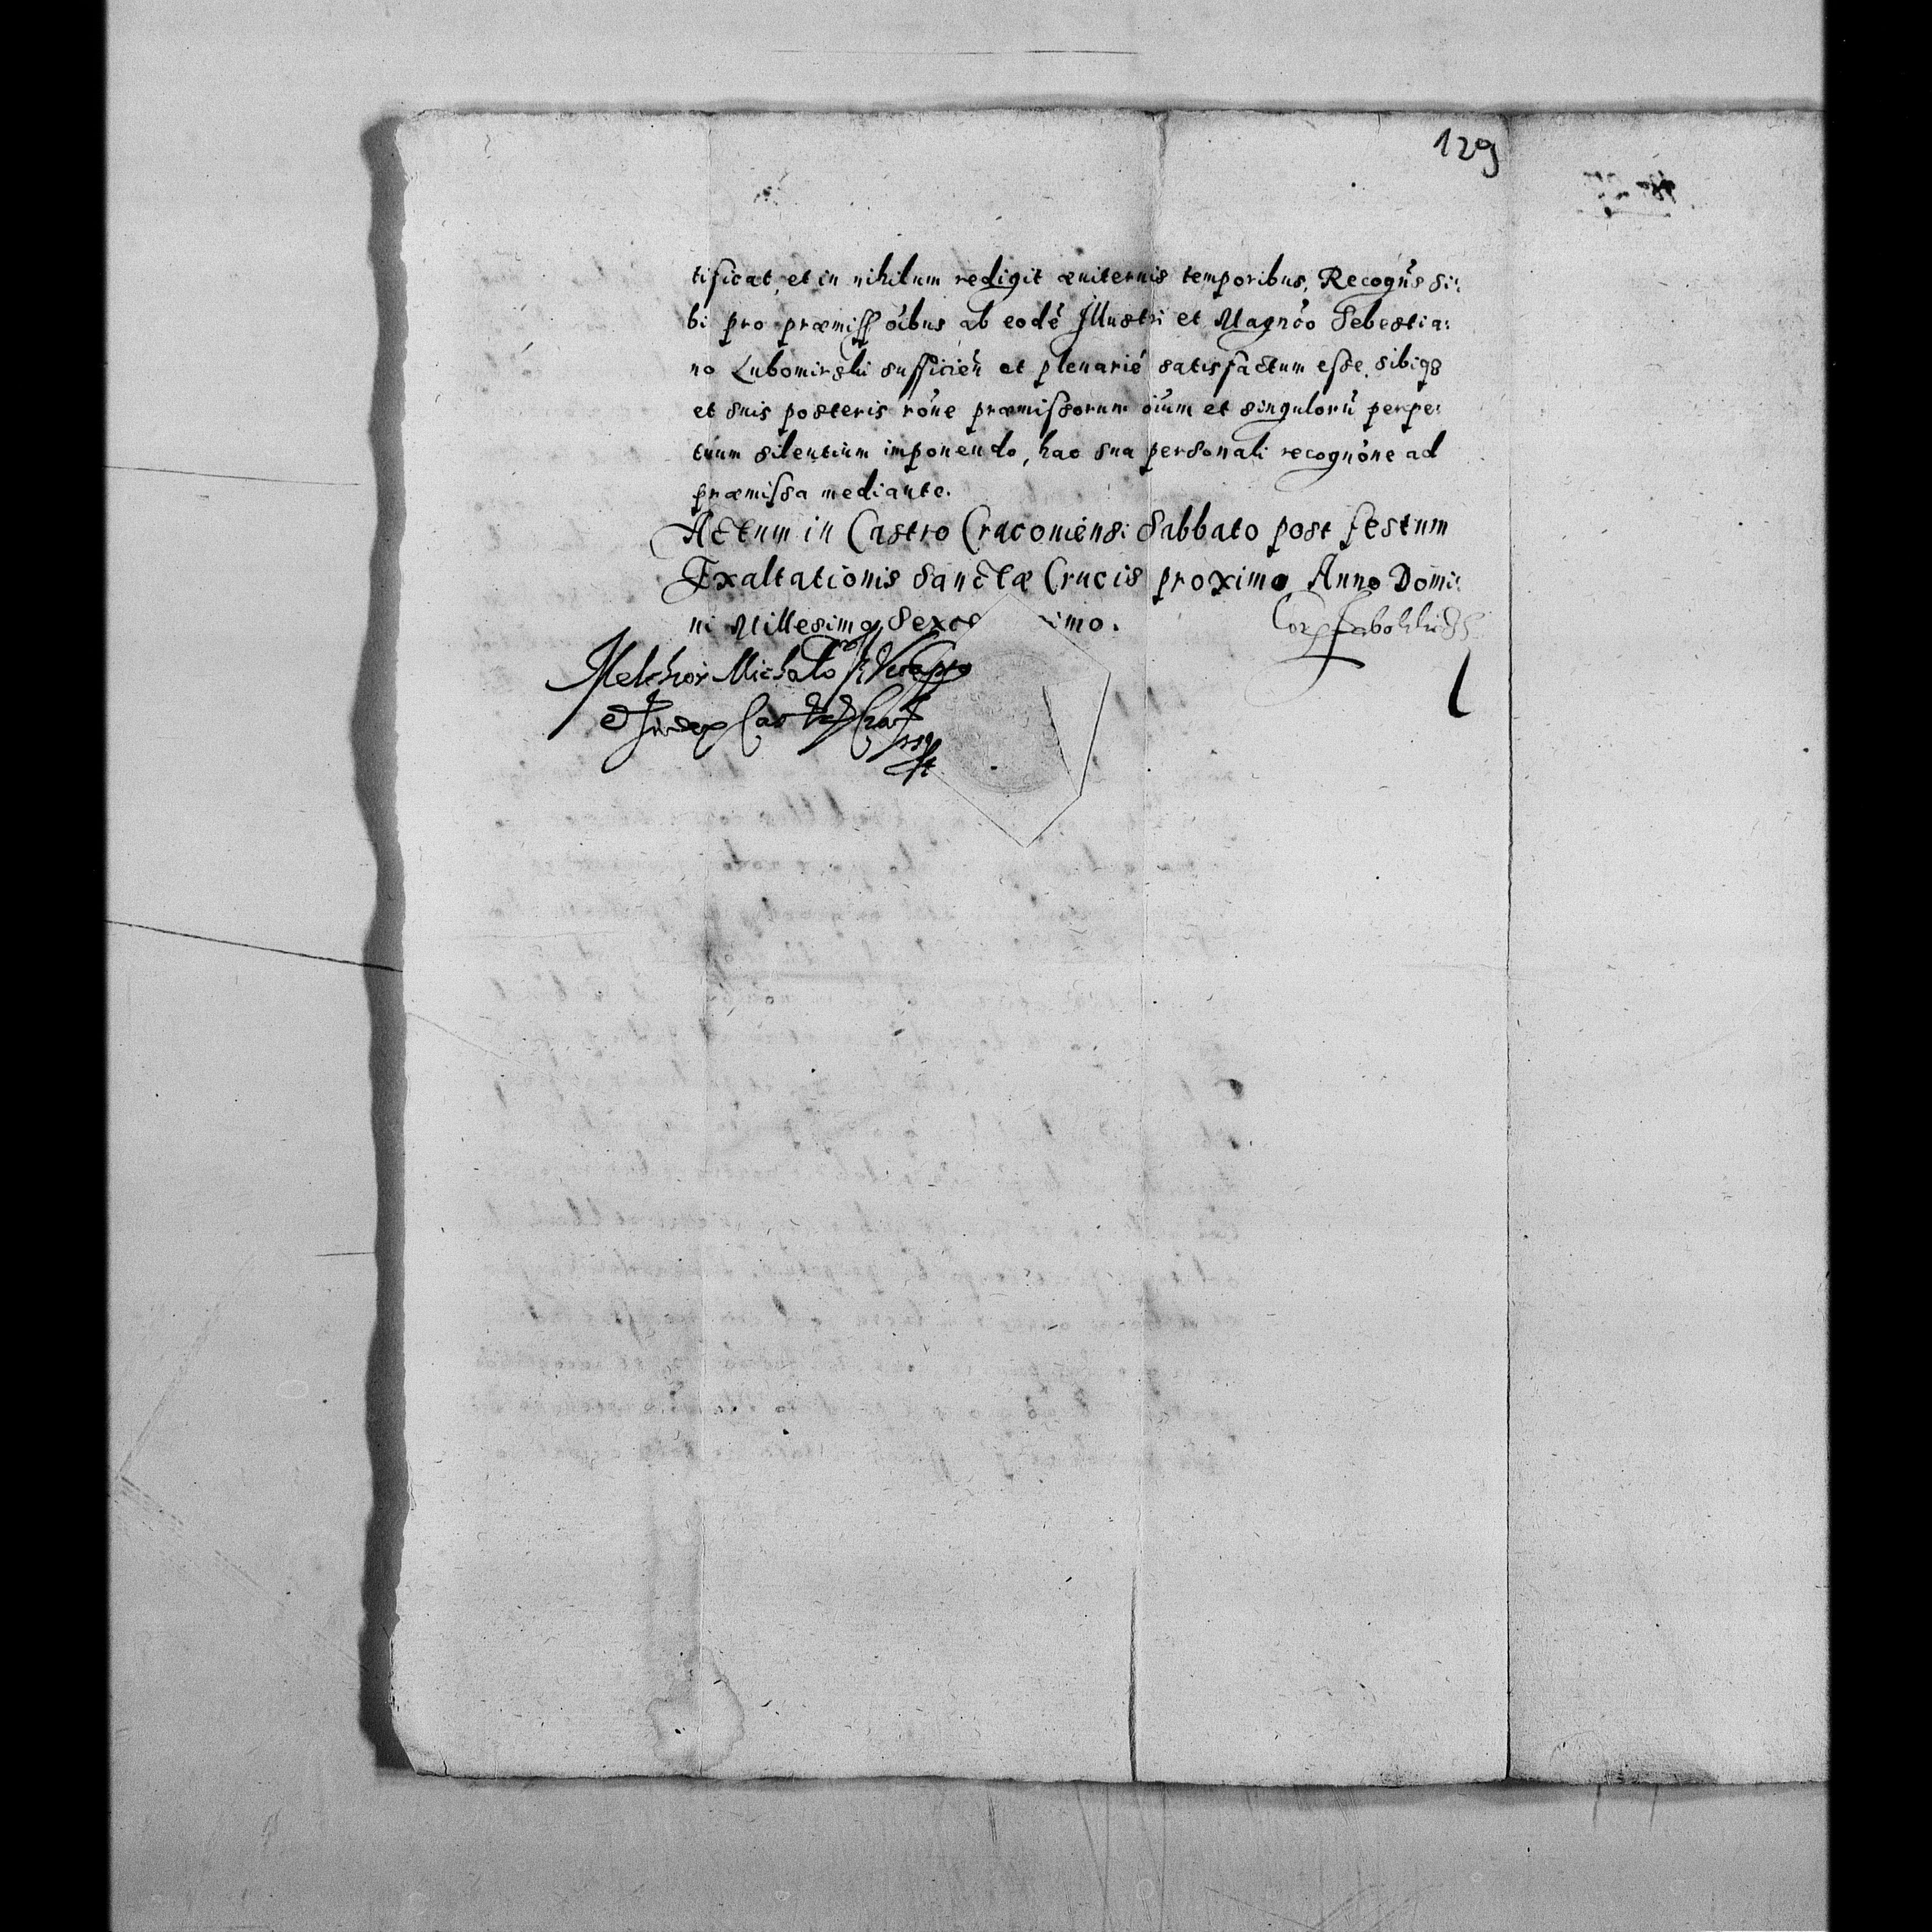 129
tificat, et in nihilum redigit æviternis temporibus, Recogn̄s si:
bi pro præmiss̄ oībus ab eodē Illustri et Magn̄co Sebestia:
no Lubomirski sufficień et plenarié satisfactum esse, sibiqȝ
et suis posteris rōne præmissorum oīum et singulorū perpe:
tuum silentium imponendo, hac sua personali recogn̄one ad
præmissa mediante.
Actum in Castro Cracoviensi Sabbato post festum
Exaltationis Sanctæ Crucis proximo Anno Domi:
ni Millesimo, Sexce imo.
Melchior Michalo
Judex